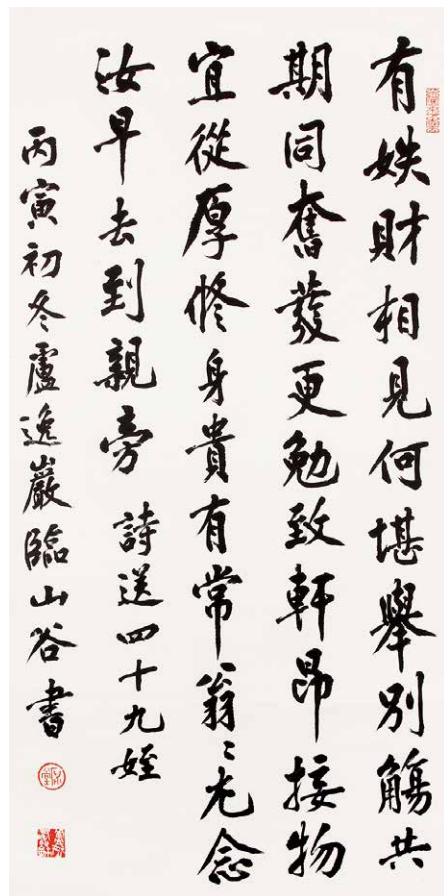 有妷財相見何堪舉別觴共
期同奮發更勉致軒昂接物
宜從厚脩身貴有常翁〻尤念
汝早去到親旁 詩送四十九姪
丙寅初冬盧逸巖臨山谷書